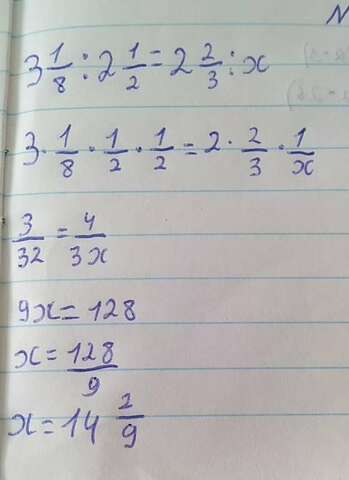 3 1/8 : 2 1/2 = 2 2/3 : x
3 · 1/8 · 1/2 · 1/2 = 2 · 2/3 · 1/x
3/32 = 4/3x
9x = 128
x = 128/9
x = 14 2/9